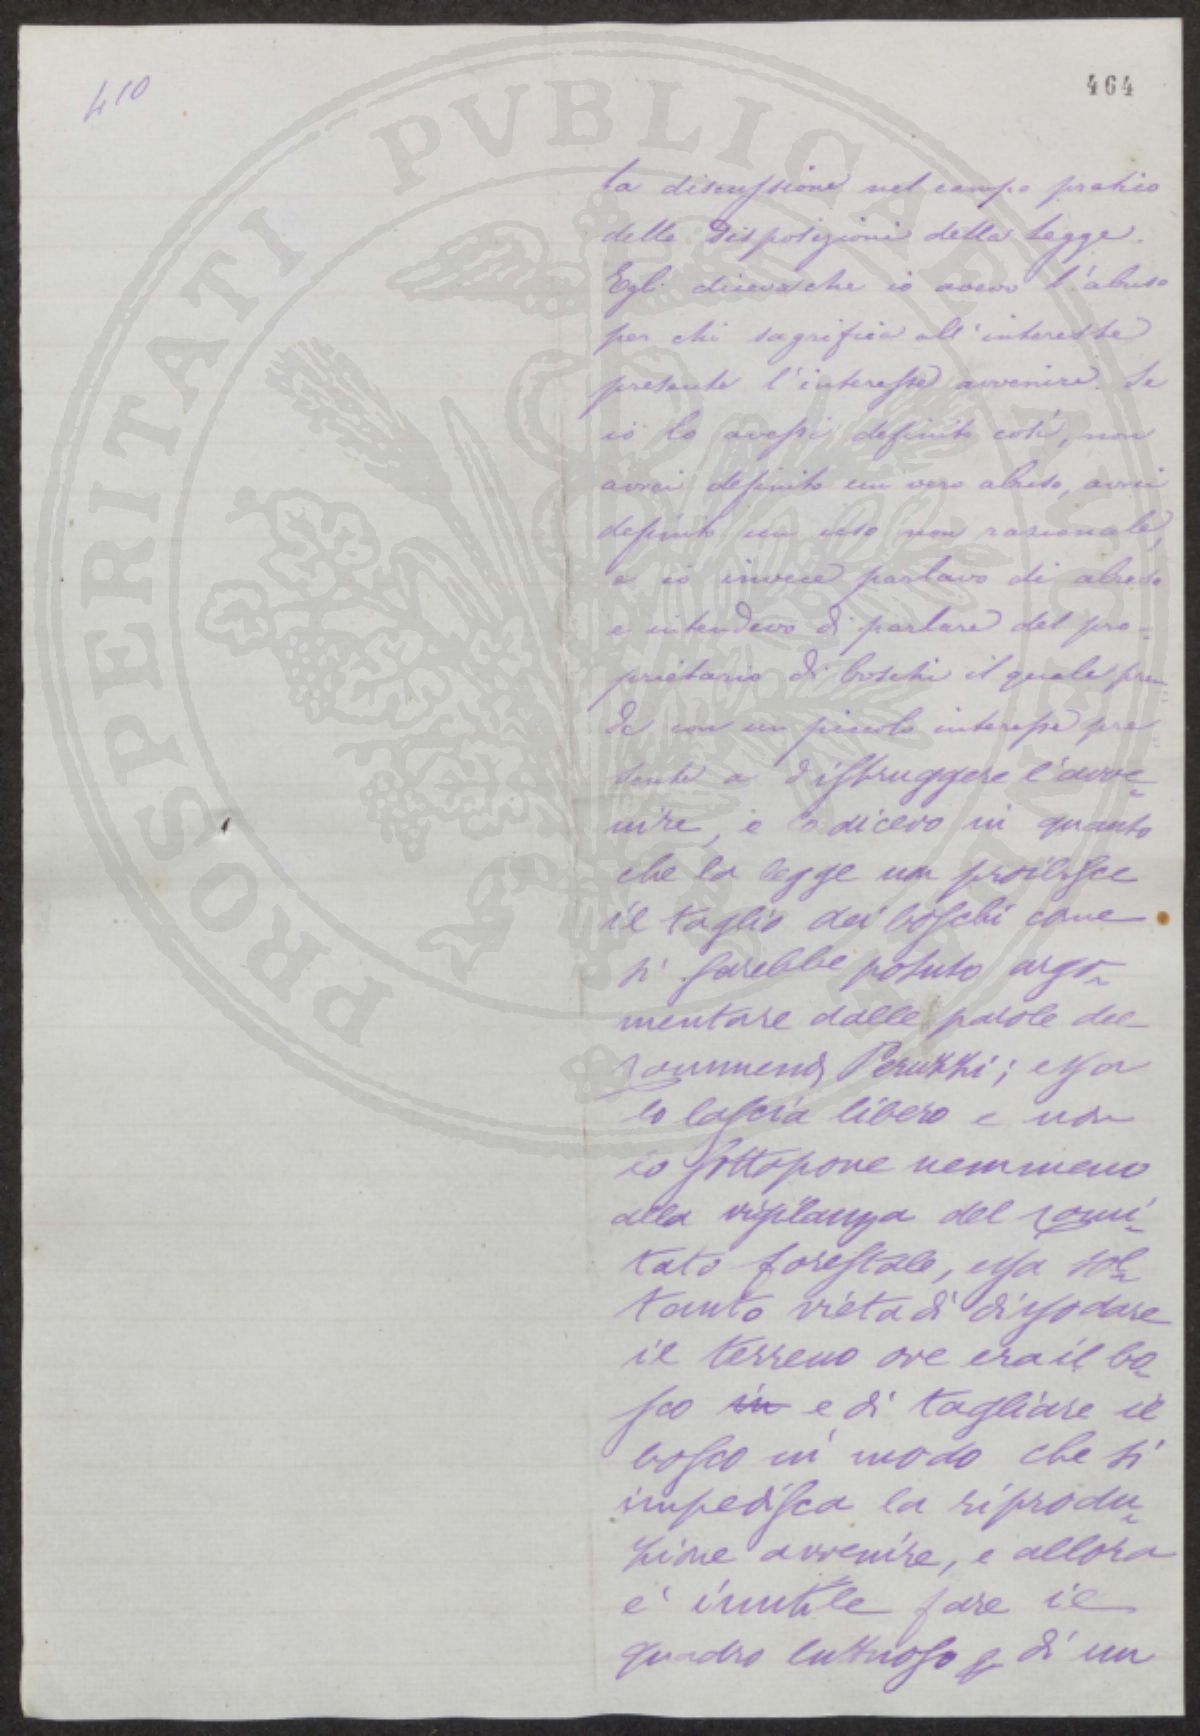 410
464
PROSPERITATI PVBLICAE
la discussione nel campo pratico
delle disposizioni della legge.
Egli diceva che io avevo l'abuso
per chi sagrifica all'interesse
presente l'interesse avvenire. Se
io lo avessi definito così, non
avrei definito un vero abuso, avrei
definito un uso non razionale,
e io invece parlavo di abuso
e intendevo di parlare del pro-
prietario di boschi il quale pren-
de con un piccolo interesse pre-
sente a distruggere l'avve-
nire, e dicevo in quanto
che la legge non proibisce
il taglio dei boschi come
si sarebbe potuto argo-
mentare dalle parole del
Commend Peruzzi; essa
lo lascia libero e non
lo sottopone nemmeno
alla vigilanza del Comi-
tato forestale, essa sol-
tanto vieta di dissodare
il terreno ove era il bo-
sco in e di tagliare il
bosco in modo che si
impedisca la riprodu-
zione avvenire, e allora
è inutile fare il
quadro luttuoso di un